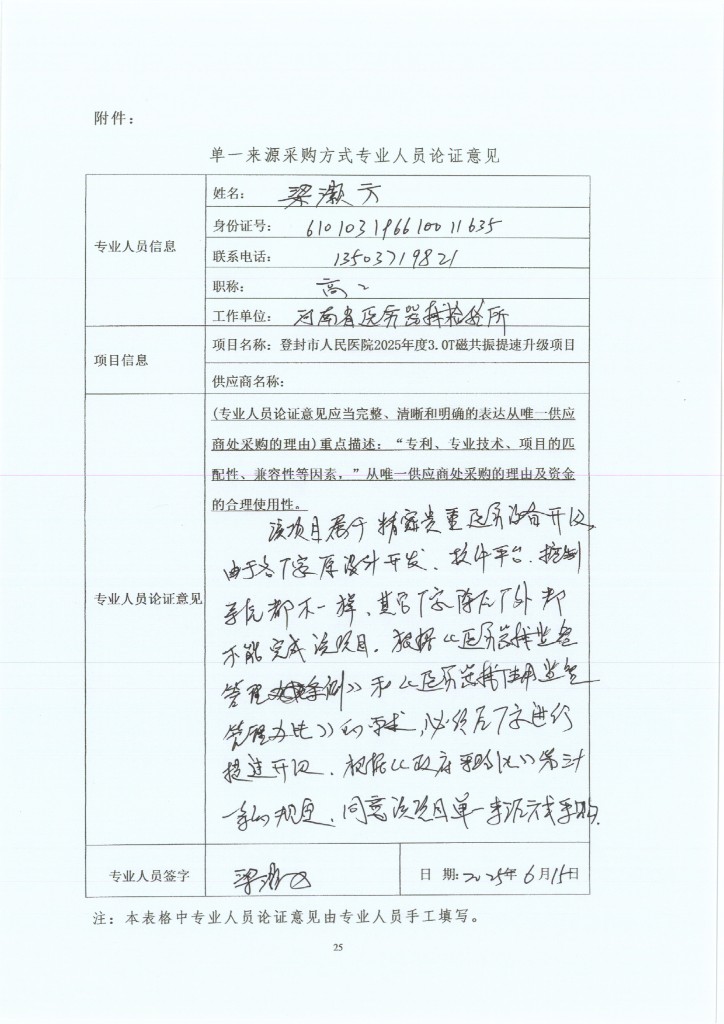 附件：
单一来源采购方式专业人员论证意见
专业人员信息
姓名： 梁灏方
身份证号： 610103196610011635
联系电话： 13503719821
职称： 高工
工作单位： 河南省医疗器械检验所
项目信息
项目名称：登封市人民医院2025年度3.0T磁共振提速升级项目
供应商名称：
专业人员论证意见
(专业人员论证意见应当完整、清晰和明确的表达从唯一供应
商处采购的理由)重点描述：“专利、专业技术、项目的匹
配性、兼容性等因素，”从唯一供应商处采购的理由及资金
的合理使用性。
该项目属于精密贵重医疗设备升级，
由于各厂家原设计开发、软件平台、控制
系统都不一样、其它厂家除原厂外都
不能完成该项目。根据《医疗器械监督
管理条例》和《医疗器械使用监督
管理办法》的要求，必须原厂家进行
提速升级。根据《政府采购法》第三十一
条的规定，同意该项目单一来源方式采购。
专业人员签字
梁灏方
日 期：2025年6月15日
注：本表格中专业人员论证意见由专业人员手工填写。
25